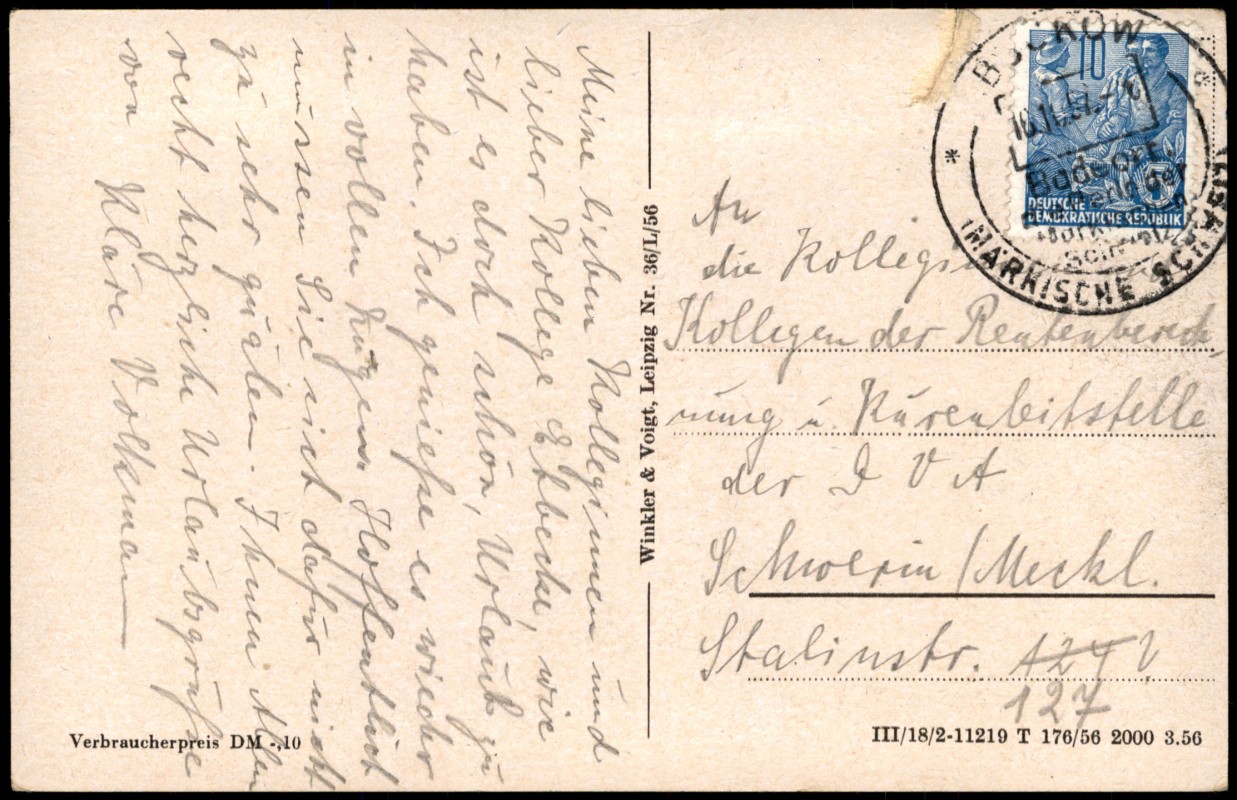 Meine lieben Kolleginnen und
lieber Kollege Etbecke, wie
ist es doch schön, Urlaub zu
haben. Ich genieße es wieder
in vollen Zügen. Hoffentlich
müssen Sie sich dafür nicht
zu sehr quälen. Ihnen Allen
recht herzliche Urlaubsgrüße
von Kläre Volkman
Verbraucherpreis DM -,10
Winkler & Voigt, Leipzig Nr. 36/L/56
BUCKOW
MÄRKISCHE SCHWEIZ
10
DEUTSCHE
DEMOKRATISCHE REPUBLIK
An
die Kolleginnen
Kollegen der Rentenberech-
nung u. Kurenleitstelle
der D V A
Schwerin / Meckl.
Stalinstr.
127
III/18/2-11219 T 176/56 2000 3.56